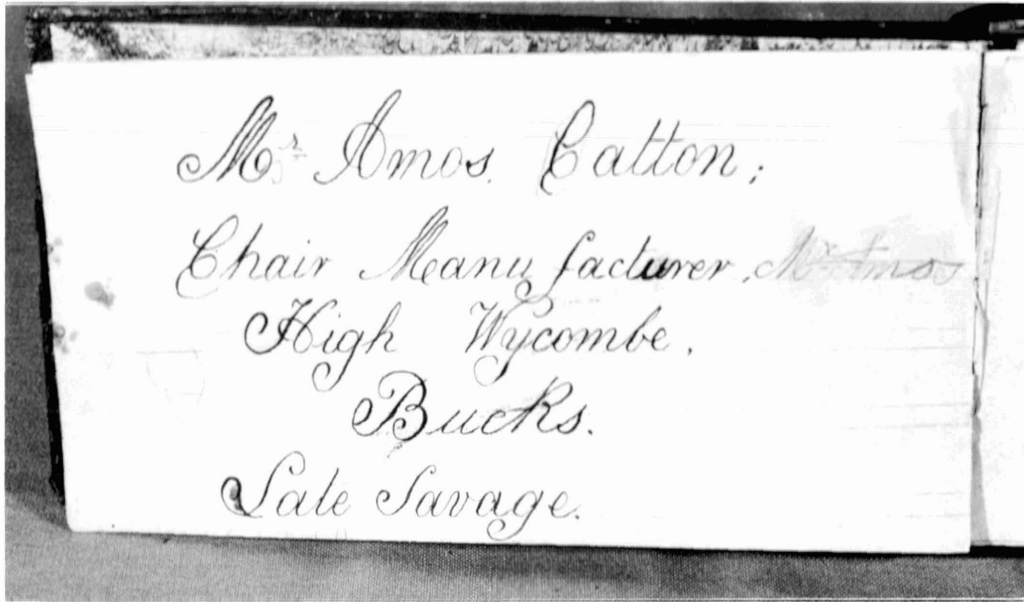 Mr Amos. Catton;
Chair Manufacturer. Mr Amos
High Wycombe.
Bucks.
Late Savage.